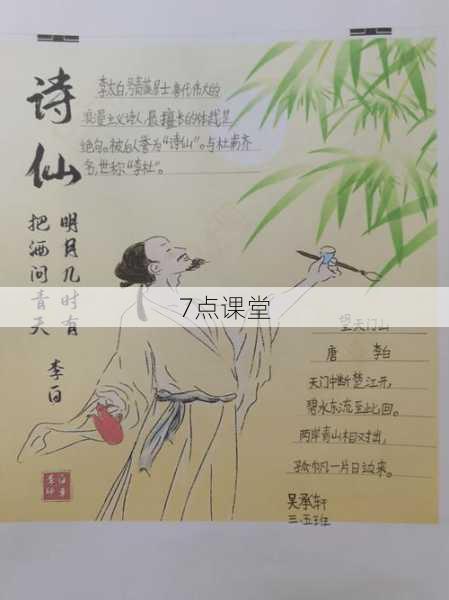 诗仙
李太白,号青莲居士,唐代伟大的
浪漫主义诗人,最擅长的体裁是
绝句。被后人誉为“诗仙”。与杜甫齐
名,世称“李杜”。
明月几时有
把酒问青天
李白
7点课堂
望天门山
唐 李白
天门中断楚江开,
碧水东流至此回。
两岸青山相对出,
孤帆一片日边来。
吴承轩
三.五班